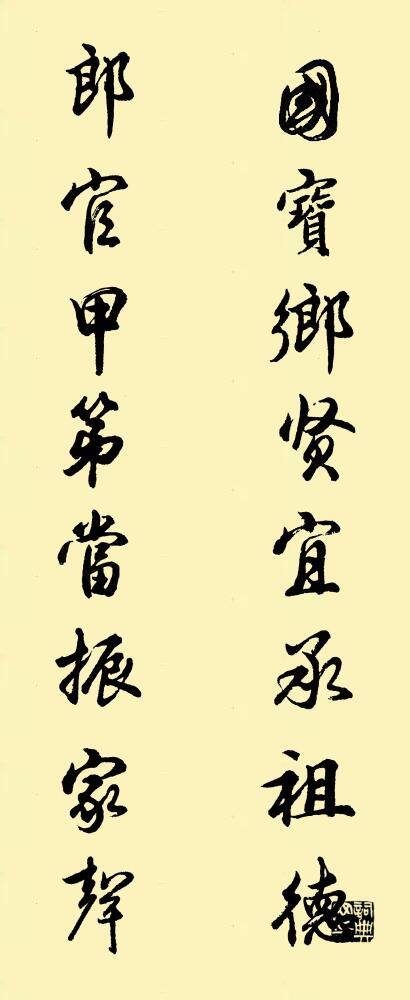 國寶鄉贤宜承祖德
郎官甲第當振家聲